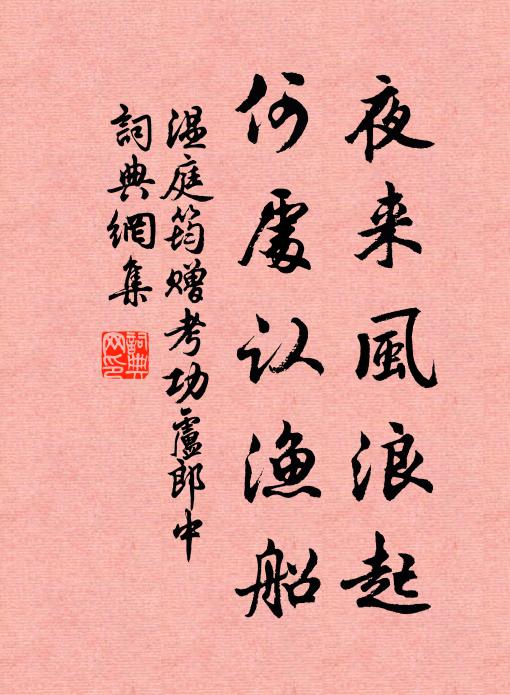 夜来風浪起
何處认漁船
温庭筠赠考功盧郎中
詞典網集
詞典網印